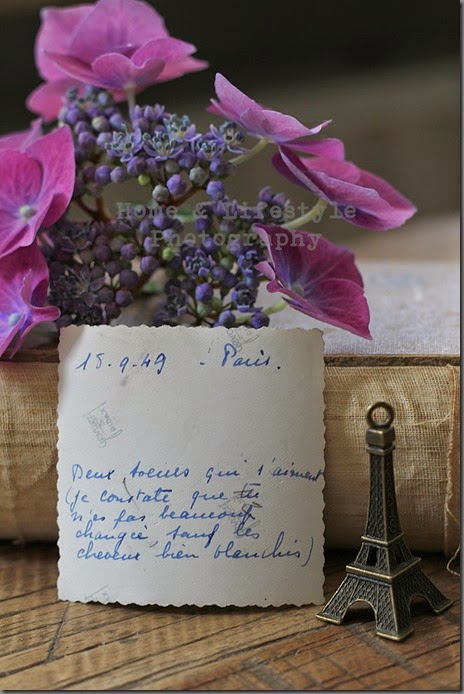 Home & Lifestyle
Photography
15.9.49 - Paris.
Deux soeurs qui s'aiment
(je constate que tu
n'es pas beaucoup
changée sauf les
cheveux bien blanchis)